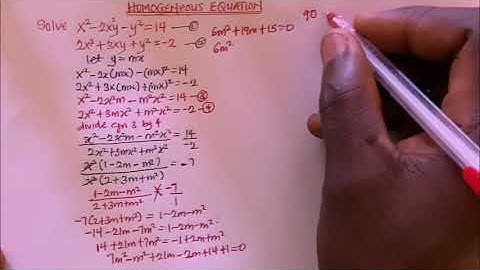 HOMOGENEOUS EQUATION
Solve x² - 2xy - y² = 14 - ①
2x² + 3xy + y² = -2 - ②
let y = mx
x² - 2x(mx) - (mx)² = 14
2x² + 3x(mx) + (mx)² = -2
x² - 2x²m - m²x² = 14 - ③
2x² + 3mx² + m²x² = -2 - ④
divide eqn 3 by 4
x² - 2x²m - m²x² = 14
2x² + 3mx² + m²x² -2
x²(1 - 2m - m²) = -7
x²(2 + 3m + m²)
1 - 2m - m² -7
2 + 3m + m² 1
-7(2 + 3m + m²) = 1 - 2m - m²
-14 - 21m - 7m² = 1 - 2m - m²
14 + 21m + 7m² = -1 + 2m + m²
7m² - m² + 21m - 2m + 14 + 1 = 0
6m² + 19m + 15 = 0
6m²
90